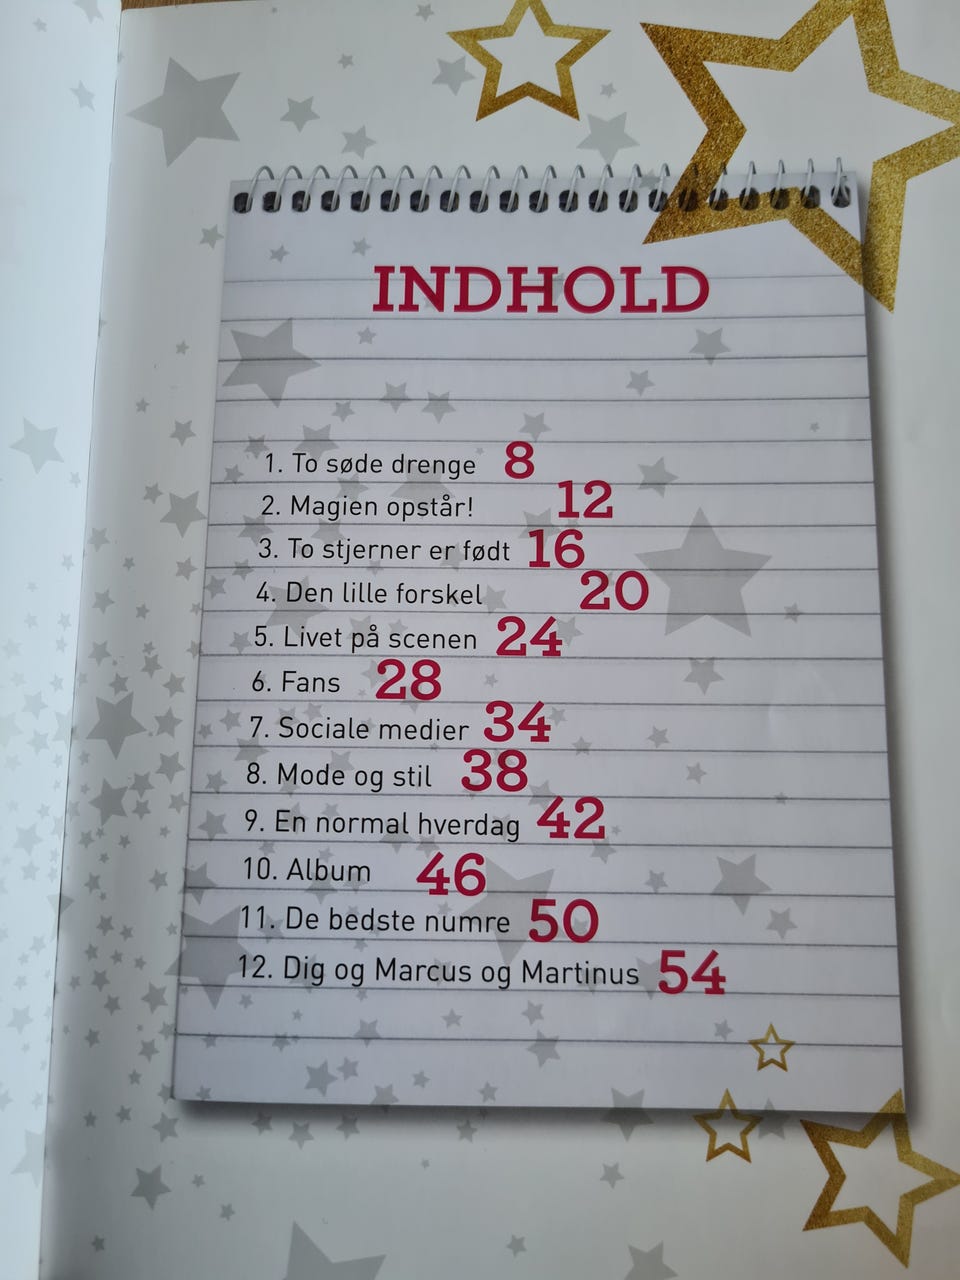 INDHOLD
1. To søde drenge 8
2. Magien opstår! 12
3. To stjerner er født 16
4. Den lille forskel 20
5. Livet på scenen 24
6. Fans 28
7. Sociale medier 34
8. Mode og stil 38
9. En normal hverdag 42
10. Album 46
11. De bedste numre 50
12. Dig og Marcus og Martinus 54